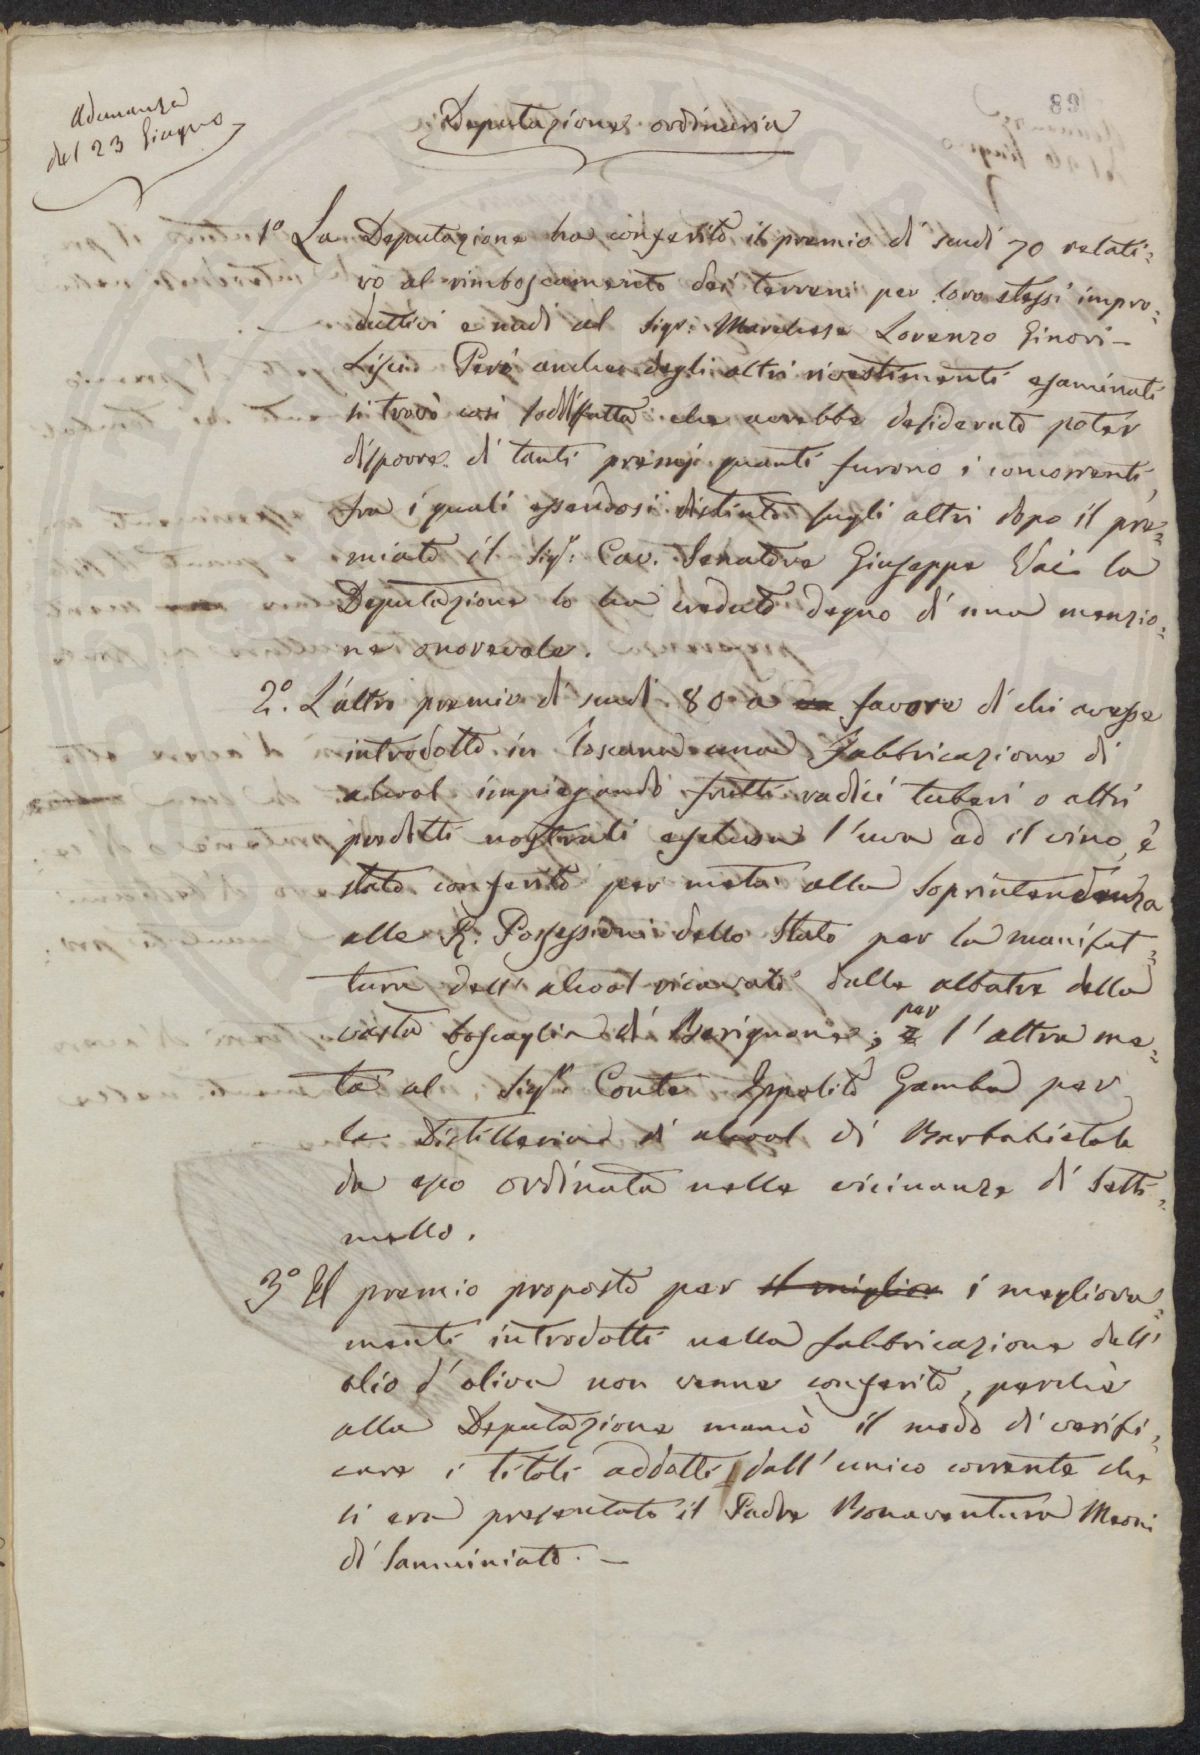 Adunanza
del 23 Giugno
89
Deputazione ordinaria
1º La Deputazione ha conferito il premio di scudi 70 relati=
vo al rimboscamento dei terreni per loro stessi impro=
duttivi e nudi al Sigr. Marchese Lorenzo Ginori-
Lisci. Però anche degli altri rivestimenti esaminati
si trovò così soddisfatta che avrebbe desiderato poter
disporre di tanti premj quanti furono i concorrenti,
fra i quali essendosi distinto sugli altri dopo il pre=
miato il Sigr. Cav. Senatore Giuseppe Vai la
Deputazione lo ha creduto degno di una menzio=
ne onorevole.
2º. L'altro premio di scudi 80 a favore di chi avesse
introdotto in Toscana una fabbricazione di
alcool impiegando frutti radici tuberi o altri
prodotti nostrali esclusa l'uva ed il vino, è
stato conferito per metà alla Soprintendenza
alle R. Possessioni dello Stato per la manifat=
tura dell'alcool ricavato dalle albatre della
vasta boscaglia di Berignone; per l'altra me=
tà al Sigr. Conte Ippolito Gamba per
la Distilleria di alcool di Barbabietole
da esso ordinata nelle vicinanze di Setti=
mello.
3º Il premio proposto per il miglior i migliora=
menti introdotti nella fabbricazione dell'
olio d'oliva non venne conferito, perchè
alla Deputazione mancò il modo di verifi=
care i titoli addotti dall'unico corrente che
si era presentato il Padre Bonaventura Meoni
di Sanminiato. —